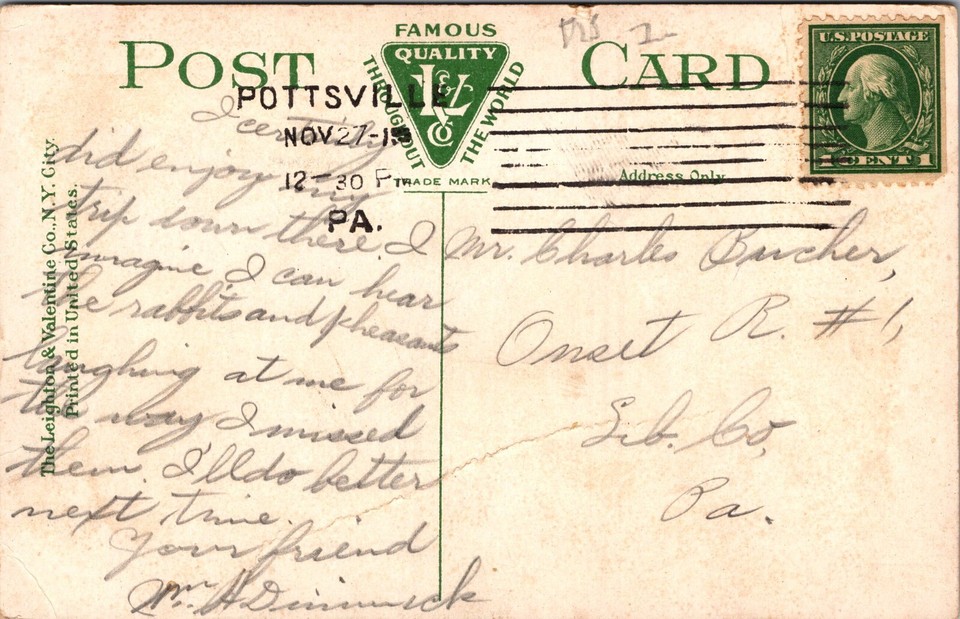 POST CARD
FAMOUS
QUALITY
THROUGHOUT THE WORLD
L&V Co
TRADE MARK
U.S. POSTAGE
1 CENT 1
POTTSVILLE
NOV 27-15
12-30 P
PA.
Address Only
The Leighton & Valentine Co., N.Y. City.
Printed in United States.
I certainly
did enjoy my
trip down there. I
imagine I can hear
the rabbits and pheasants
laughing at me for
the way I missed
them. I'll do better
next time.
Your friend
Wm H Dimmick
Mr. Charles Bucher,
Onset R. #1,
Leb. Co,
Pa.